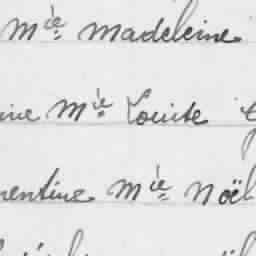 Mie Madeleine
ine Mie Louise
mentine Mie Noël